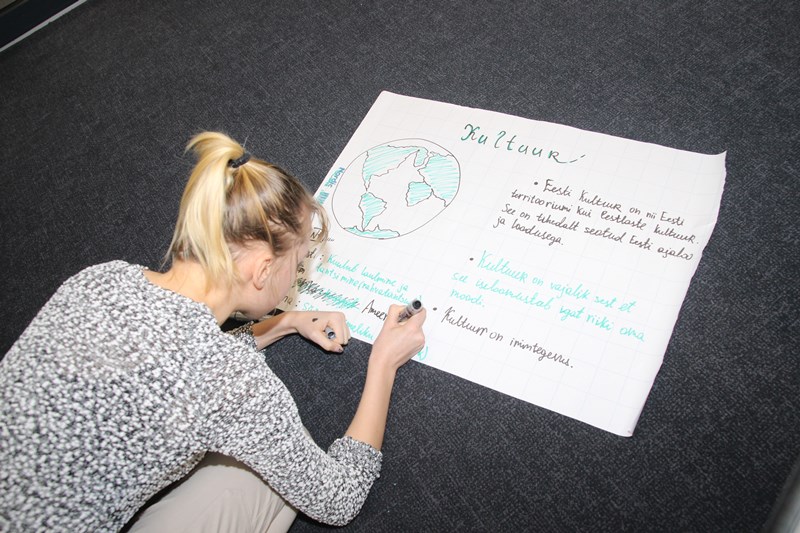 Kultuur
• Eesti Kultuur on nii Eesti
territooriumi kui eestlaste kultuur.
See on tihedalt seotud eesti ajaloo
ja loodusega.
• Kultuur on vajalik sest et
see iseloomustab igat riiki oma
moodi.
• Kultuur on inimtegevus.
Kuulub laulmine ja
tantsimine
Ameer